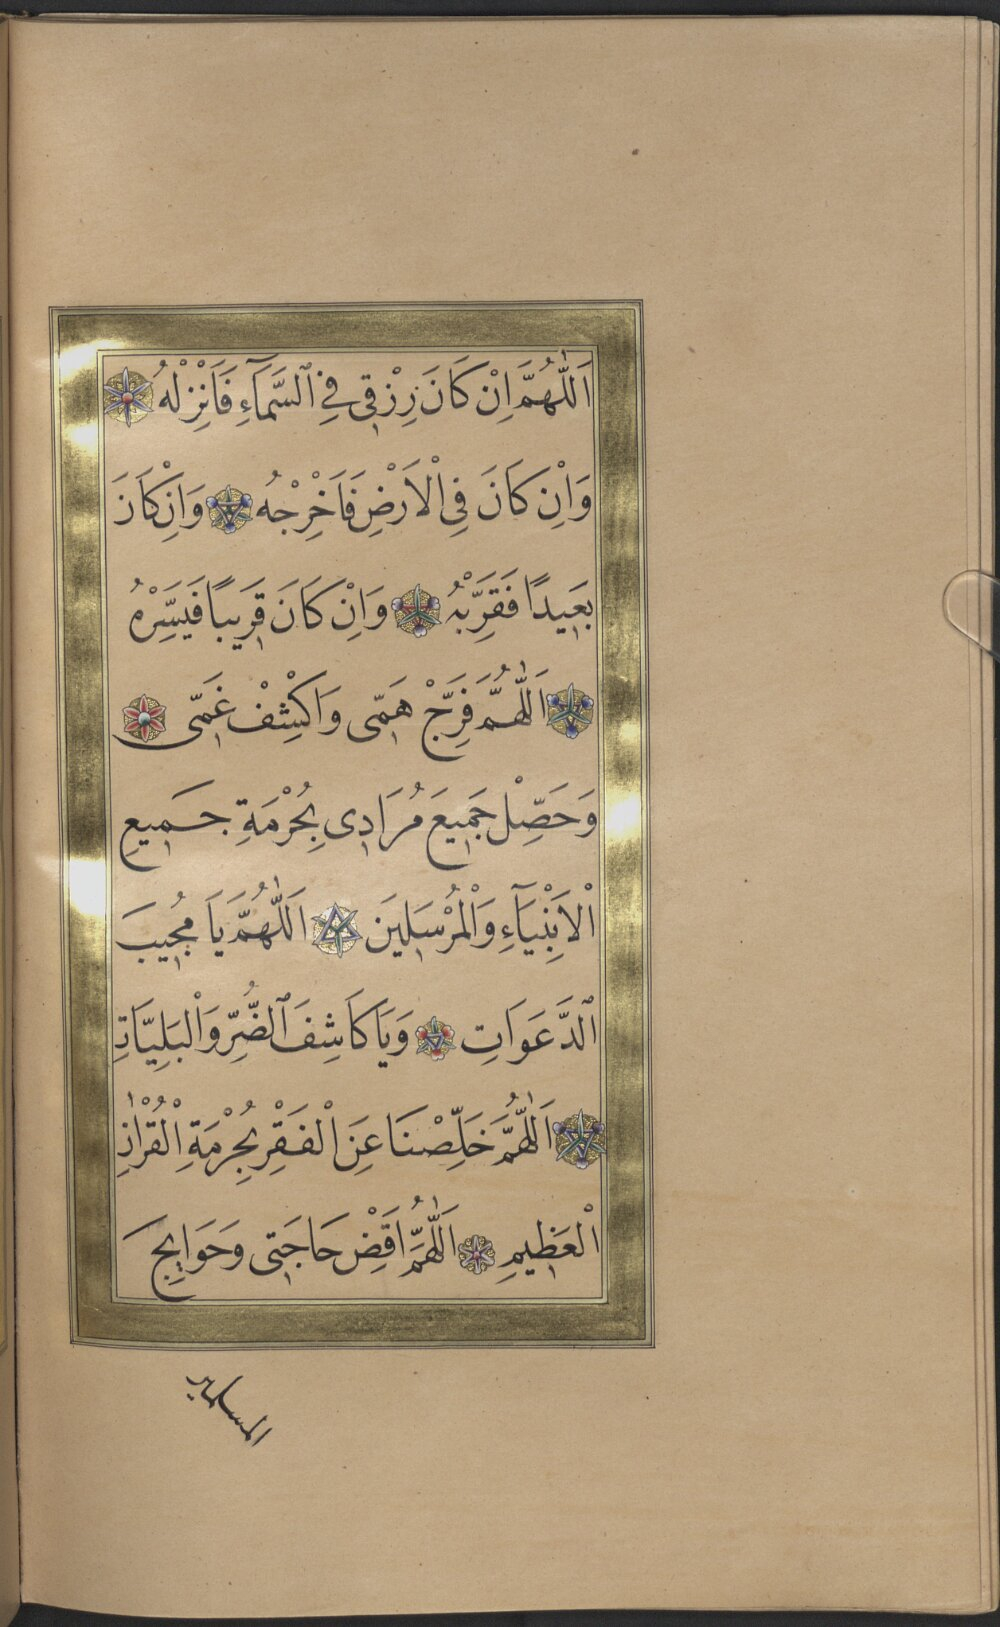 اَللّٰهُمَّ اِنْ كَانَ رِزْقِي فِي ٱلسَّمَآءِ فَاَنْزِلْهُ
وَاِنْ كَانَ فِى الْاَرْضِ فَاَخْرِجْهُ وَاِنْ كَانَ
بَعِيدًا فَقَرِّبْهُ وَاِنْ كَانَ قَرِيبًا فَيَسِّرْهُ
اَللّٰهُمَّ فَرِّجْ هَمِّى وَاكْشِفْ غَمِّى
وَحَصِّلْ جَمِيعَ مُرَادِى بِحُرْمَةِ جَمِيعِ
الْاَنْبِيَآءِ وَالْمُرْسَلِينَ اَللّٰهُمَّ يَا مُجِيبَ
ٱلدَّعَوَاتِ وَيَا كَاشِفَ ٱلضُّرِّ وَالْبَلِيَّاتِ
اَللّٰهُمَّ خَلِّصْنَا عَنِ الْفَقْرِ بِحُرْمَةِ الْقُرْاٰنِ
الْعَظِيمِ اَللّٰهُمَّ اقْضِ حَاجَتِى وَحَوَايِجَ
المسلمين